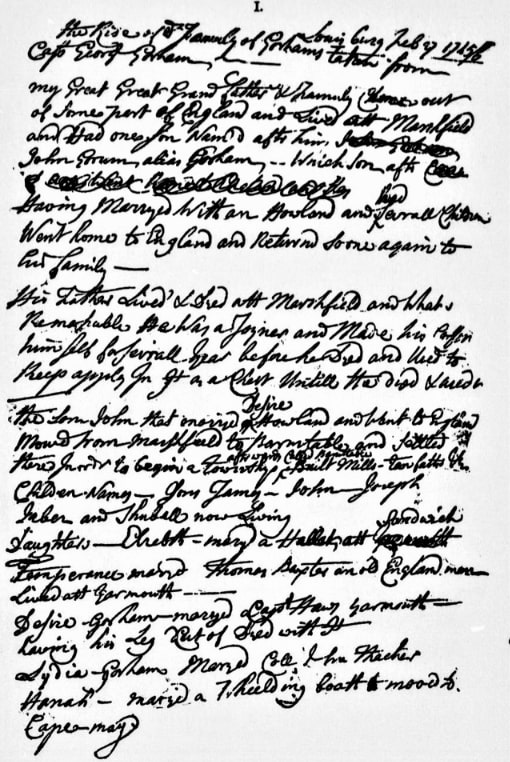 I.
the Rise of ye Family of Gorhams taken from
Louis burg Feb 27 1745/6
Capt Georg Gorham
my Great Great Grand father & Famuly Come out
of Some part of England and Lived att Marshfield
and Had one Son Nam'd after him
John Gorum, alias Gorham, -- which Son aft
Having Marryed With an Howland and had Severall Children
Went home to England and Returnd Soone again to
his family —
His Father Lived & Died att Marshfield and whats
Remarkable He Was a Joyner and Made his Coffen
himself for Severall Year before he Died and Used to
Keep apples In It as a Chest Untill He died
the Son John that marryed Desire Howland and Went to England
Moved from Marshfield to Barnstable and Settled
there In order to begin a Township Built Mills - tan fatts
Childen Names — Gors James — John — Joseph
Jaber and Shuball now Living
Daughters — Elezebth — maryd a Hallet, att Sandwich
Temperance maryd Thomas Baxter an old England man
Lived att Yarmouth —
Desire Gorham — marryed Capt Haws Yarmouth —
having his Leg Cut of Died with It
Lydia — Gorham Maryed Coll John Thacher
Hanah — maryed a Wheelding moved to
Cape may